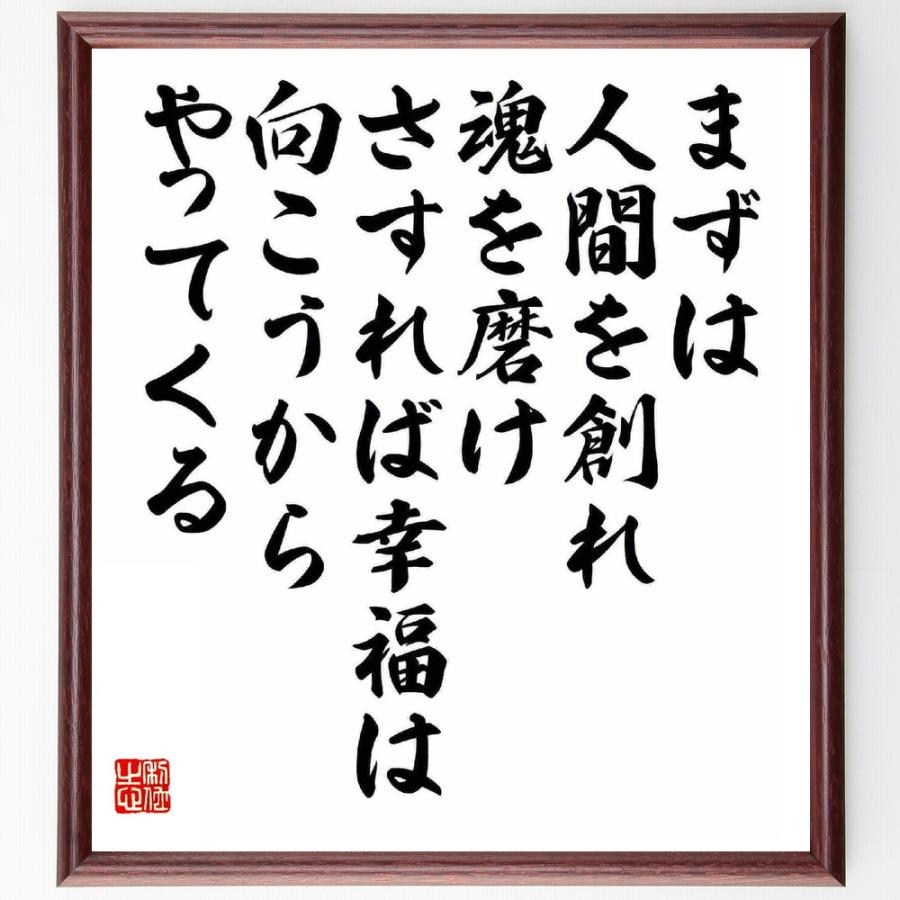 まずは
人間を創れ
魂を磨け
さすれば幸福は
向こうから
やってくる